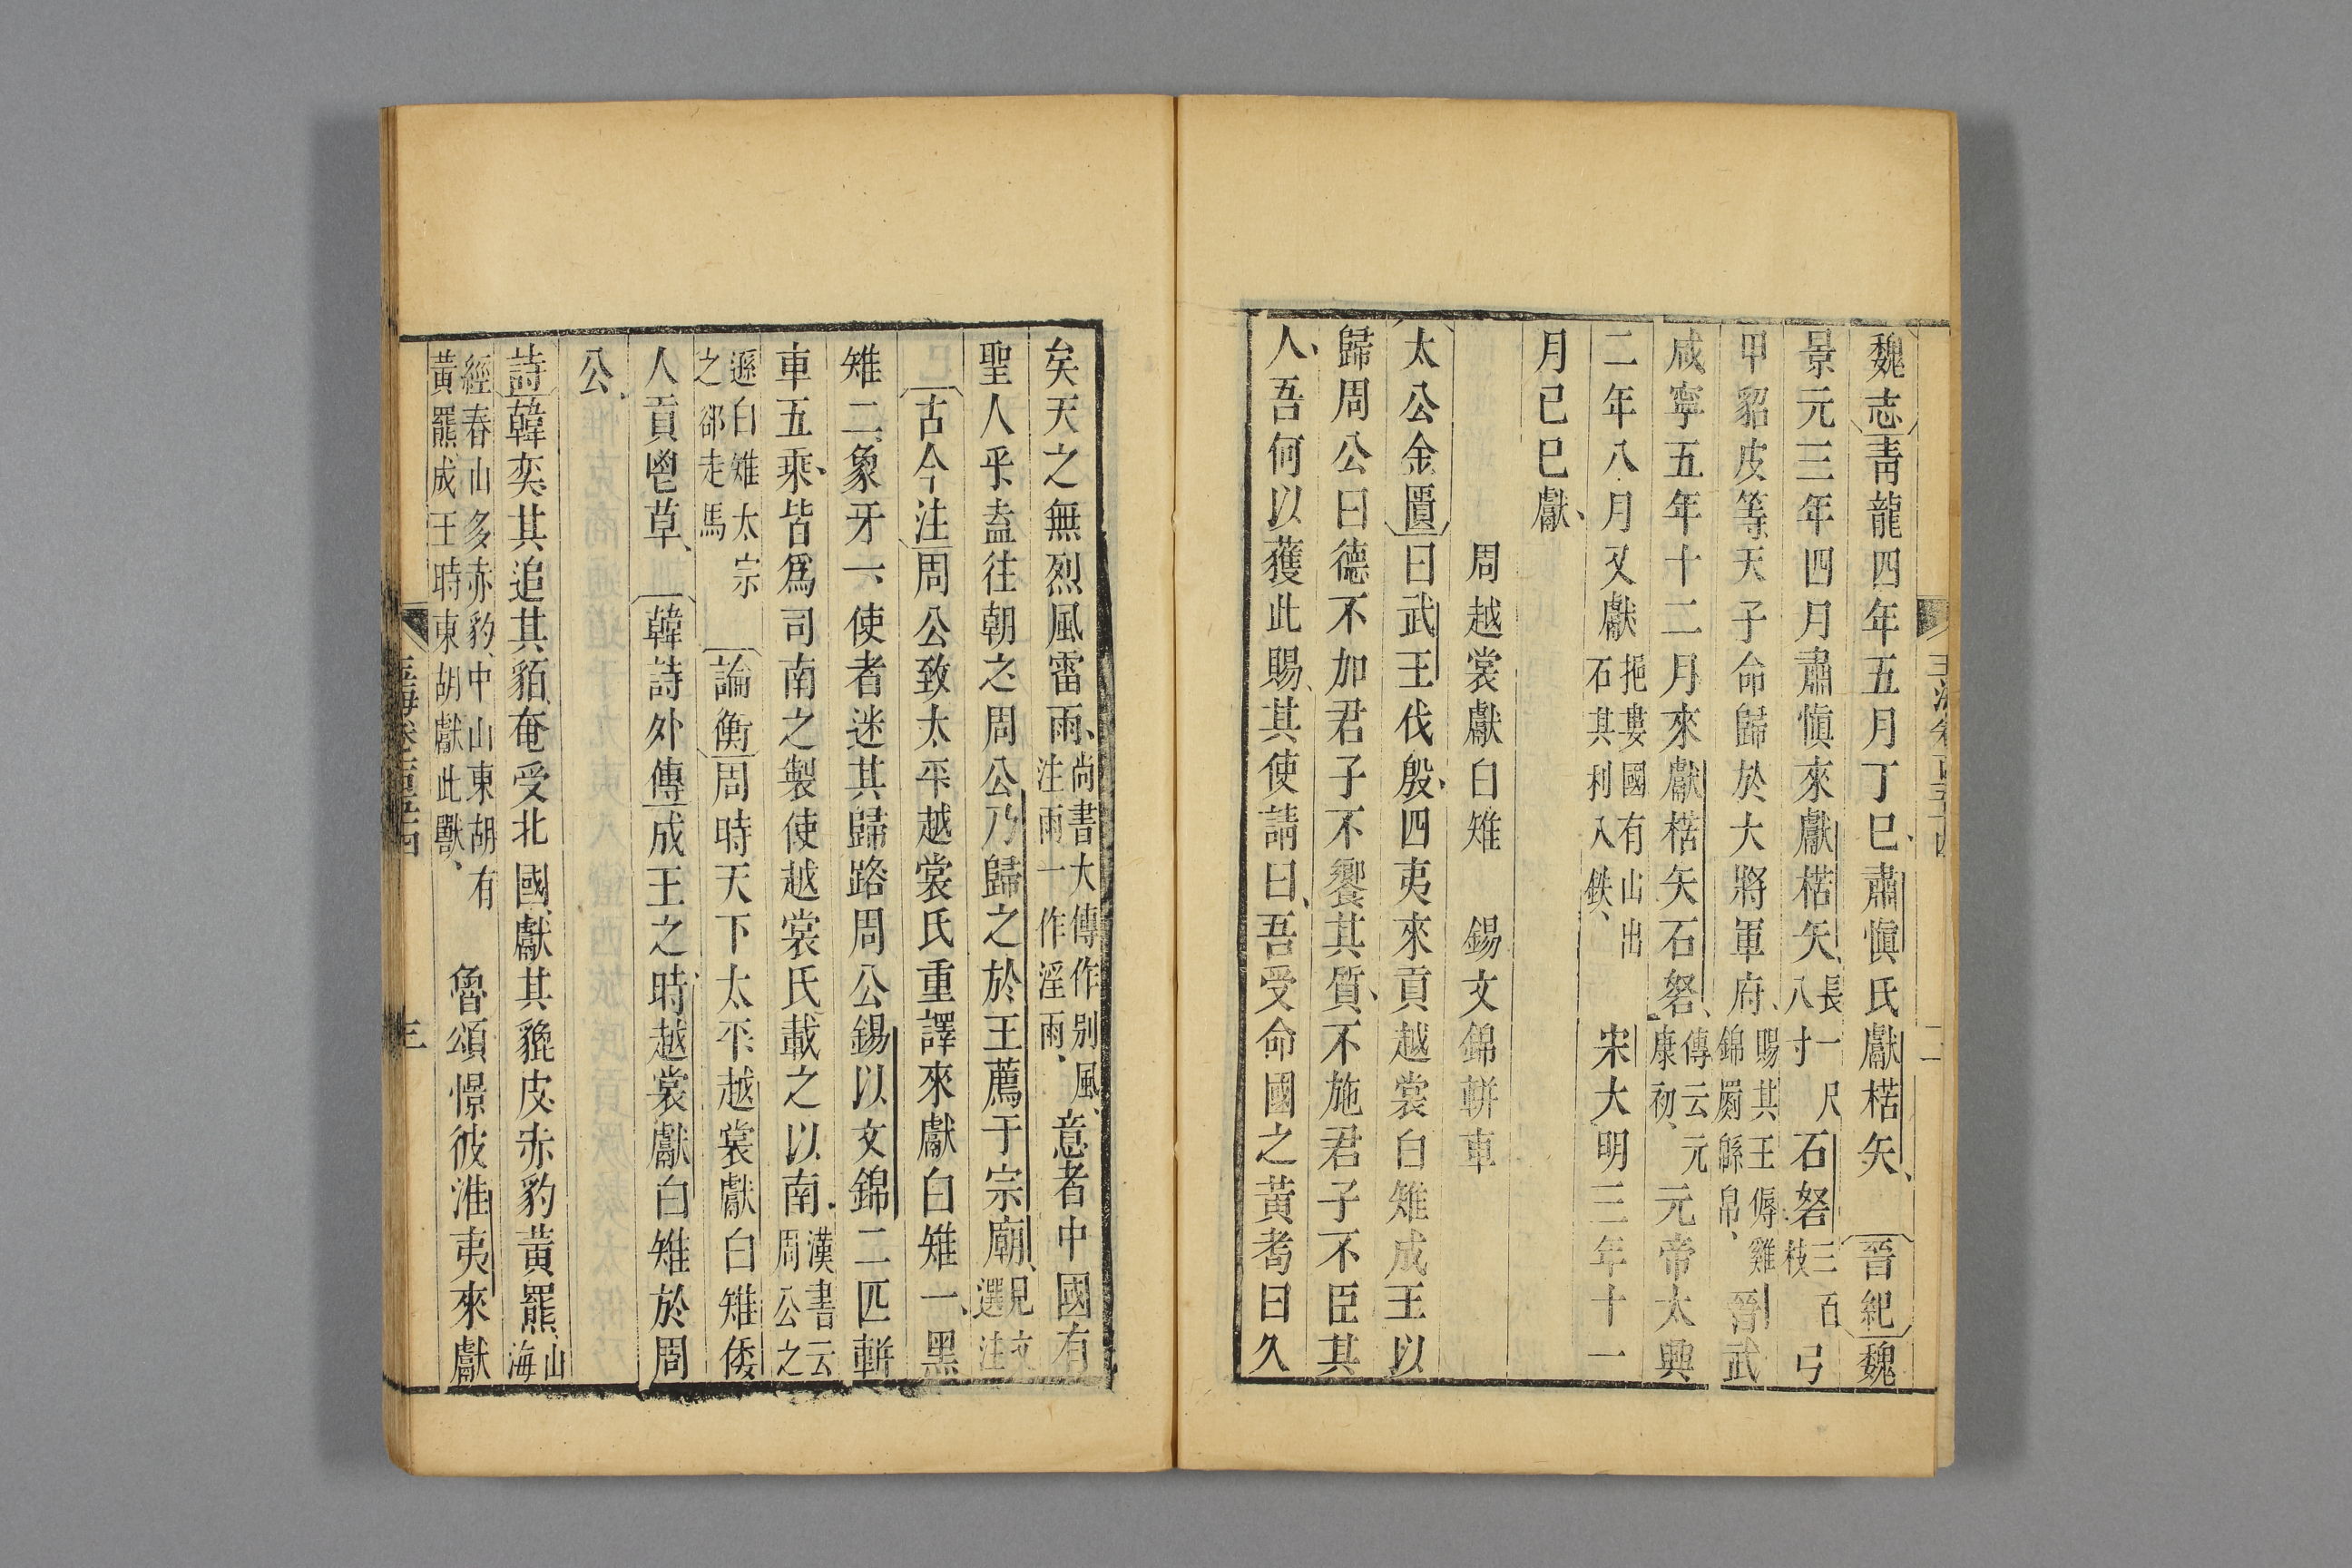 魏志青龍四年五月丁巳肅愼氏獻楛矢晉紀魏
景元三年四月肅愼來獻楛矢長一尺八寸石砮三百枝弓
甲貂皮等天子命歸於大將軍府賜其王傉雞錦罽緜帛晉武
咸寧五年十二月來獻楛矢石砮傳云元康初元帝太興
二年八月又獻挹婁國有山出石其利入鉄宋大明三年十一
月己巳獻
周越裳獻白雉 錫文錦軿車
太公金匱曰武王伐殷四夷來貢越裳白雉成王以
歸周公曰德不加君子不饗其質不施君子不臣其
人吾何以獲此賜其使請曰吾受命國之黃耇曰久
矣天之無烈風雷雨尚書大傳作別風注雨一作淫雨意者中國有
聖人乎盍往朝之周公乃歸之於王薦于宗廟見文選注
古今注周公致太平越裳氏重譯來獻白雉一黑
雉二象牙一使者迷其歸路周公錫以文錦二匹軿
車五乘皆爲司南之製使越裳氏載之以南漢書云周公之
遜白雉太宗之郤走馬論衡周時天下太平越裳獻白雉倭
人貢鬯草韓詩外傳成王之時越裳獻白雉於周
公
詩韓奕其追其貊奄受北國獻其貔皮赤豹黃羆山海
經春山多赤豹中山東胡有黃羆成王時東胡獻此獸魯頌憬彼淮夷來獻
三